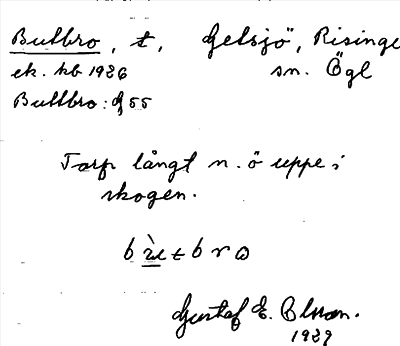 Butbro, t, Getsjö, Risinge
ek. kb 1926 sn. Ögl
Buttbro: G 55
Torp långt n. ö uppe i
skogen.
b ù t b r o
Gustaf E. Olsson.
1929